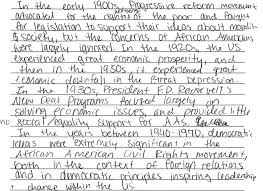 In the early 1900s, Progressive reform movement
advocated for the rights of the poor and fought
for legislation to support their ideas about morality
& society, but the concerns of African Americans
were largely ignored. In the 1920s, the US
experienced great economic prosperity, and
then in the 1930s, experienced great
economic downfall in the Great Depression.
In the 1930s, President F.D. Roosevelt's
New Deal Programs focused largely on
solving economic issues, and provided little
social equality support for AAs.
In the years between 1940-1970, democratic
ideas were extremely significant in the
African American Civil Rights movement,
both in the context of foreign relations
and in democratic principles inspiring leadership
+ change within the US.